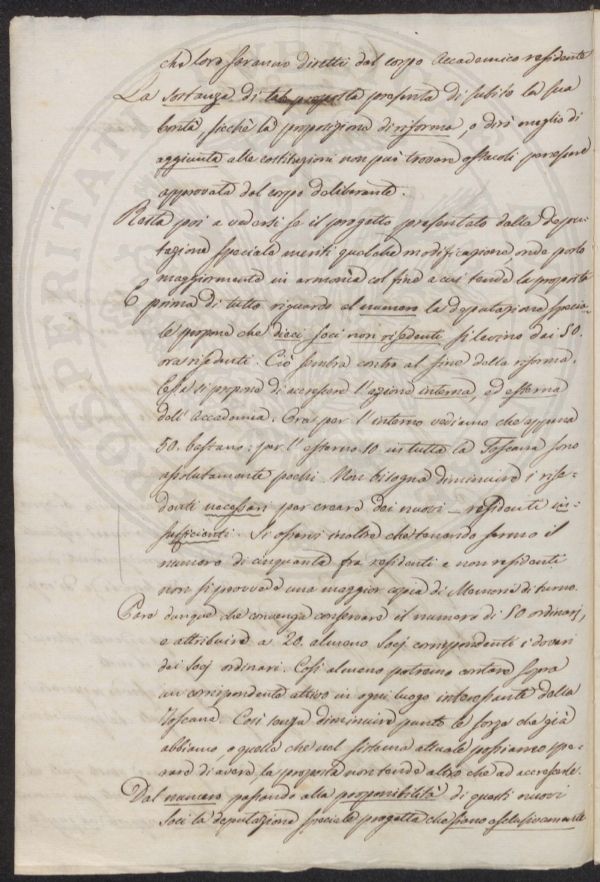 che loro saranno diretti dal corpo Accademico residente
La sostanza di tal proposta presenta di subito la sua
bontà, sicchè la proposizione di riforma, o dirò meglio di
aggiunta alle costituzioni non può trovare ostacoli per essere
approvata dal corpo deliberante.
Resta poi a vedersi se il progetto presentato dalla depu-
tazione speciale meriti qualche modificazione, onde porlo
maggiormente in armonia col fine a cui tende la proposta
E prima di tutto riguardo al numero la deputazione specia-
le propone che dieci soci non residenti si levino dai 50.
ora residenti. Ciò sembra contro al fine della riforma.
Essa si propone di accrescere l'azione interna ed esterna
dell'Accademia. Ora per l'interno vediamo che appena
50. bastano: per l'esterno 10 in tutta la Toscana sono
assolutamente pochi. Non bisogna diminuire i resi-
denti necessari per creare dei nuovi residenti in-
sufficienti. Si osservi inoltre che tenendo fermo il
numero di cinquanta fra residenti e non residenti
non si provvede a una maggior copia di Memorie di turno.
Pare dunque che convenga conservare il numero di 50 ordinarj,
e attribuire a 20. almeno Socj corrispondenti i doveri
dei Socj ordinari. Così almeno potremo contare sopra
un corrispondente attivo in ogni luogo interessante della
Toscana. Così senza diminuire punto le forze che già
abbiamo o quelle che nel sistema attuale possiamo spe-
rare di avere, la proposta non tende altro che ad accrescerle.
Dal numero passando alla proponibilità di questi nuovi
Soci la deputazione speciale progetta che siano esclusivamente
PROSPERITATI